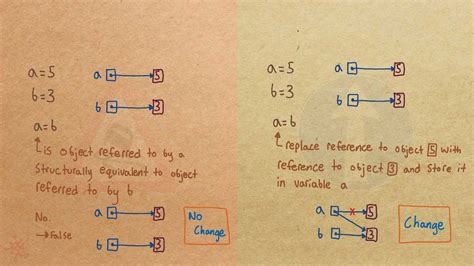 a=5
b=3
a 5
b 3
a=b
is object referred to by a
structurally equivalent to object
referred to by b
No.
→False
a 5
b 3
No
Change
a=5
b=3
a 5
b 3
a=b
replace reference to object 5 with
reference to object 3 and store it
in variable a
a x 5
b 3
Change